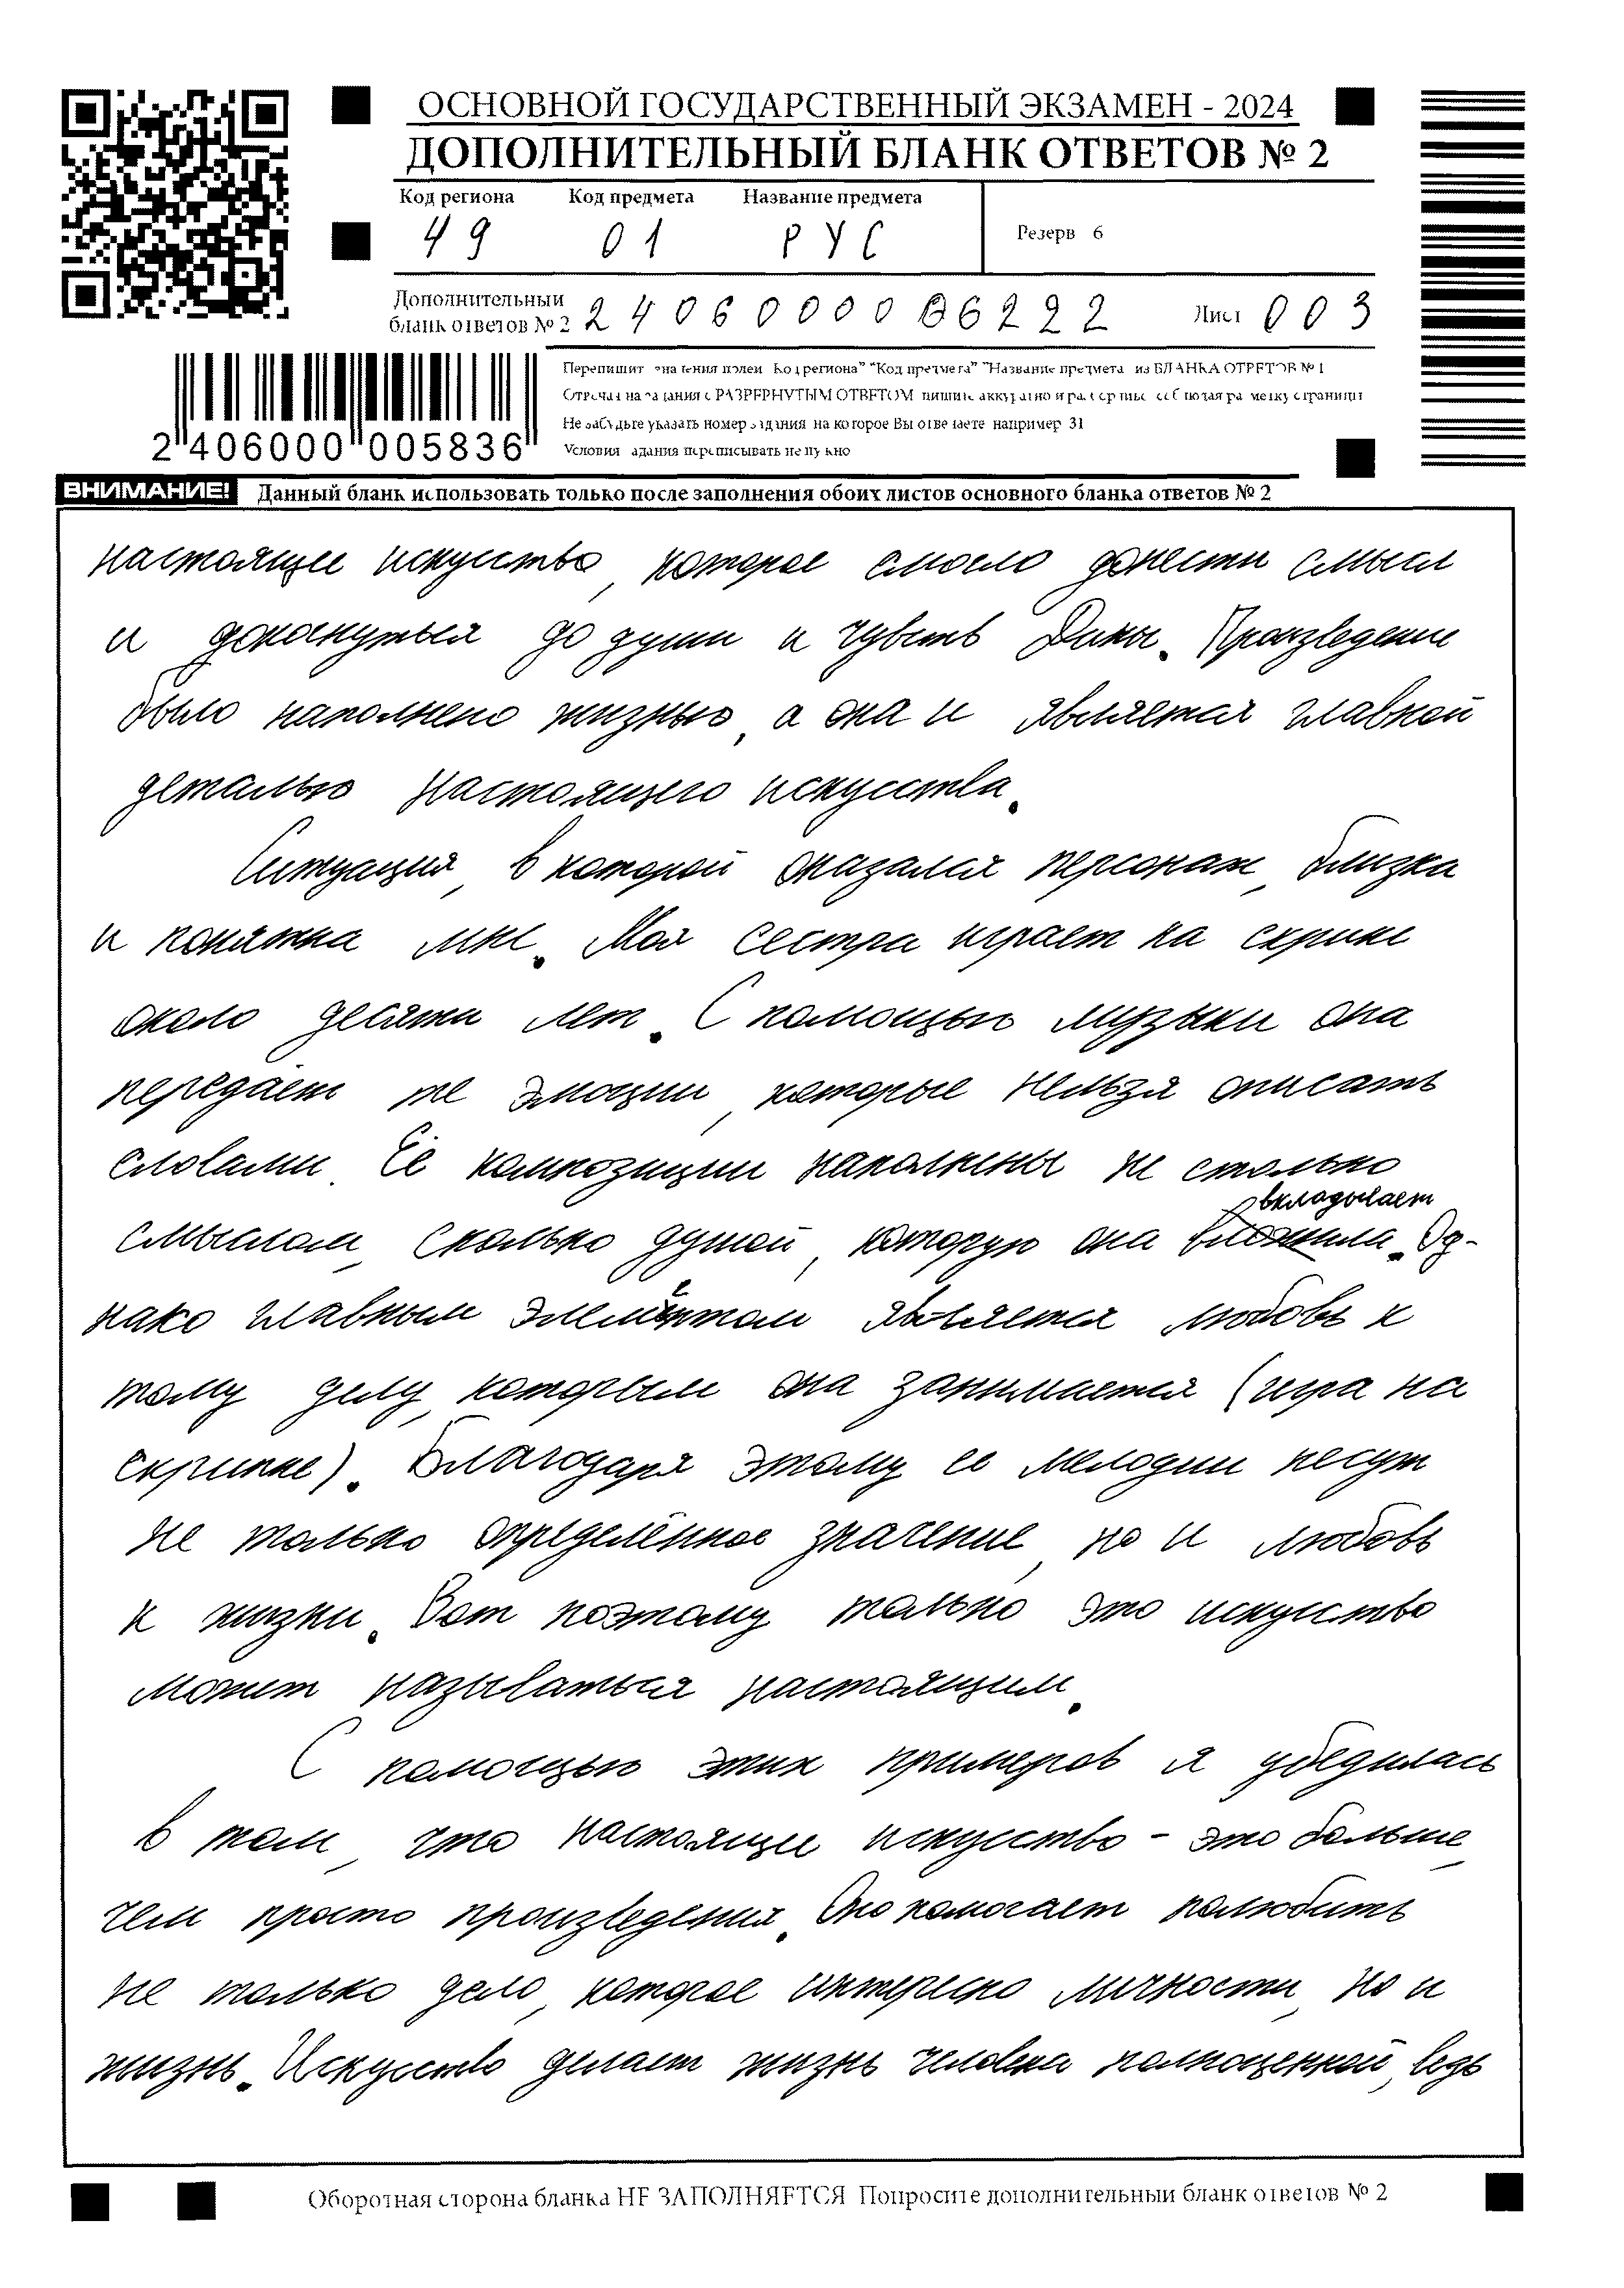 ОСНОВНОЙ ГОСУДАРСТВЕННЫЙ ЭКЗАМЕН - 2024
ДОПОЛНИТЕЛЬНЫЙ БЛАНК ОТВЕТОВ № 2
Код региона Код предмета Название предмета
49 01 РУС
Резерв 6
Дополнительный бланк ответов № 2 2406000006222 Лист 003
Перепишите значения полей "Код региона" "Код предмета" "Название предмета" из БЛАНКА ОТВЕТОВ № 1
Отвечая на задания с РАЗВЕРНУТЫМ ОТВЕТОМ пишите аккуратно и разборчиво, соблюдая разметку страницы
Не забудьте указать номер задания на которое Вы отвечаете например 31
Условия задания переписывать не нужно
2 406000 005836
ВНИМАНИЕ! Данный бланк использовать только после заполнения обоих листов основного бланка ответов № 2
настоящее искусство, которое смогло донести смысл
и докоснуться до души и чувств Дины. Произведение
было наполнено жизнью, а она и является главной
деталью настоящего искусства.
Ситуация, в которой оказался персонаж, близка
и понятна мне. Моя сестра играет на скрипке
около десяти лет. С помощью музыки она
передаёт те эмоции, которые нельзя описать
словами. Её композиции наполнены не столько
смыслом, сколько душой, которую она вкладывает. Од-
нако главным элементом является любовь к
тому делу, которым она занимается (игра на
скрипке). Благодаря этому ее мелодии несут
не только определённое значение, но и любовь
к жизни. Вот поэтому только это искусство
может называться настоящим.
С помощью этих примеров я убедилась
в том, что настоящее искусство - это больше,
чем просто произведения. Оно помогает полюбить
не только дело, которое интересно личности, но и
жизнь. Искусство делает жизнь человека полноценной, ведь
Оборотная сторона бланка НЕ ЗАПОЛНЯЕТСЯ Попросите дополнительный бланк ответов № 2